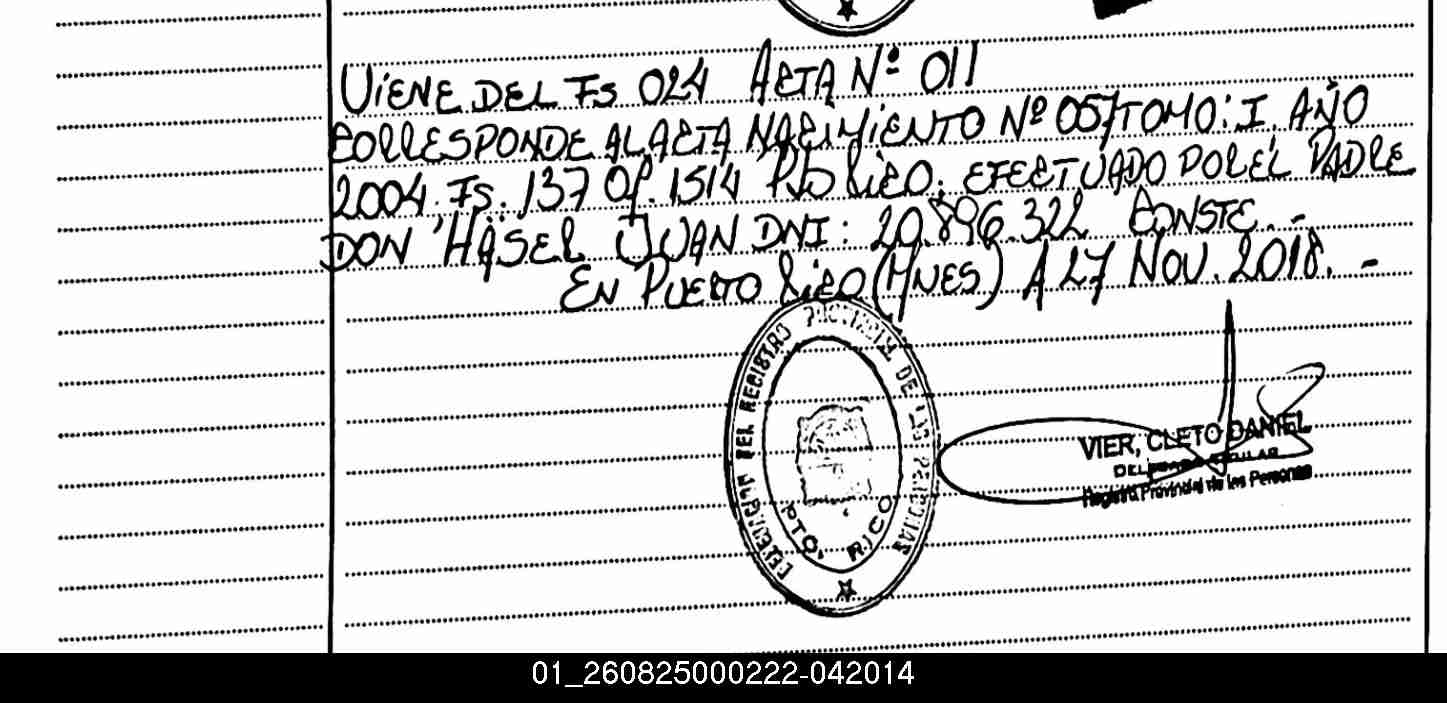 VIENE DEL Fs 024 ACTA Nº 011
CORRESPONDE AL ACTA NACIMIENTO Nº 057 TOMO: I. AÑO
2004. Fs. 137 Of. 1514 Pto Rico. EFECTUADO POR EL PADRE
DON HASEL JUAN DNI: 20.896.322 CONSTE. -
EN PUERTO Rico (MNES) A 27 NOV. 2018. -
DELEGACION DEL REGISTRO PROVINCIAL DE LAS PERSONAS
PTO. RICO
VIER, CLETO DANIEL
DELEGADO TITULAR
Registro Provincial de las Personas
01_260825000222-042014